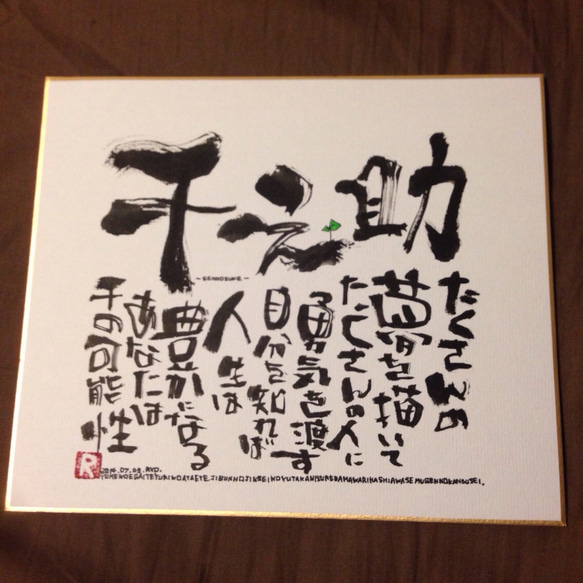 千之助
~SENNOSUKE~
たくさんの
夢を描いて
たくさんの人に
勇気を渡す
自分を知れば
人生は
豊かになる
あなたは
千の可能性
R
2014.07.08.RYO.